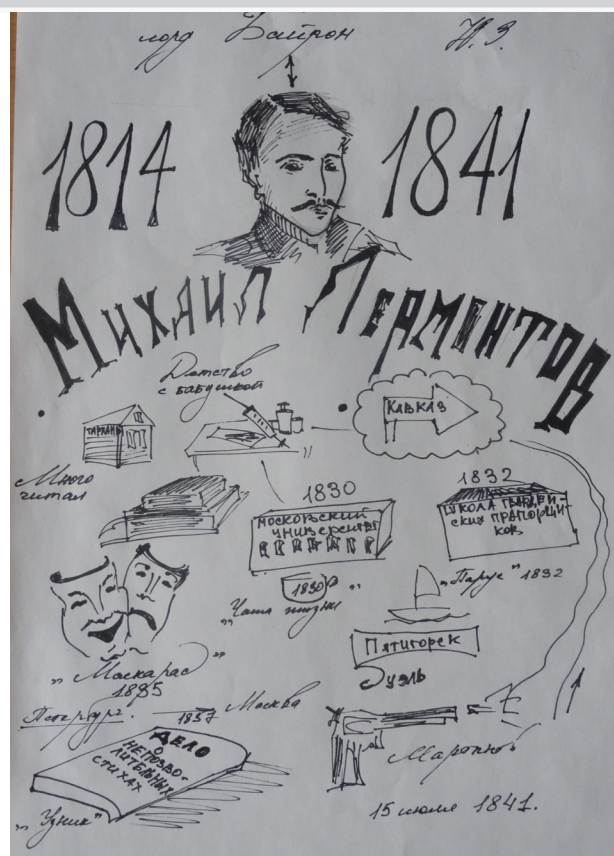 лорд Байрон
Н.З.
1814
1841
Михаил Лермонтов
Детство
с бабушкой
Тарханы
КАВКАЗ
Много
читал
1830
МОСКОВСКИЙ
УНИВЕРСИТЕТ
1832
ШКОЛА ГВАРДЕЙ-
СКИХ ПРАПОРЩИ-
КОВ
1830
"Чаша жизни"
"Парус" 1832
Пятигорск
Дуэль
"Маскарад"
1835
Петербург. 1837 Москва
ДЕЛО
О
НЕПОЗВО-
ЛИТЕЛЬНЫХ
СТИХАХ
"Узник"
Мартынов
15 июля 1841.